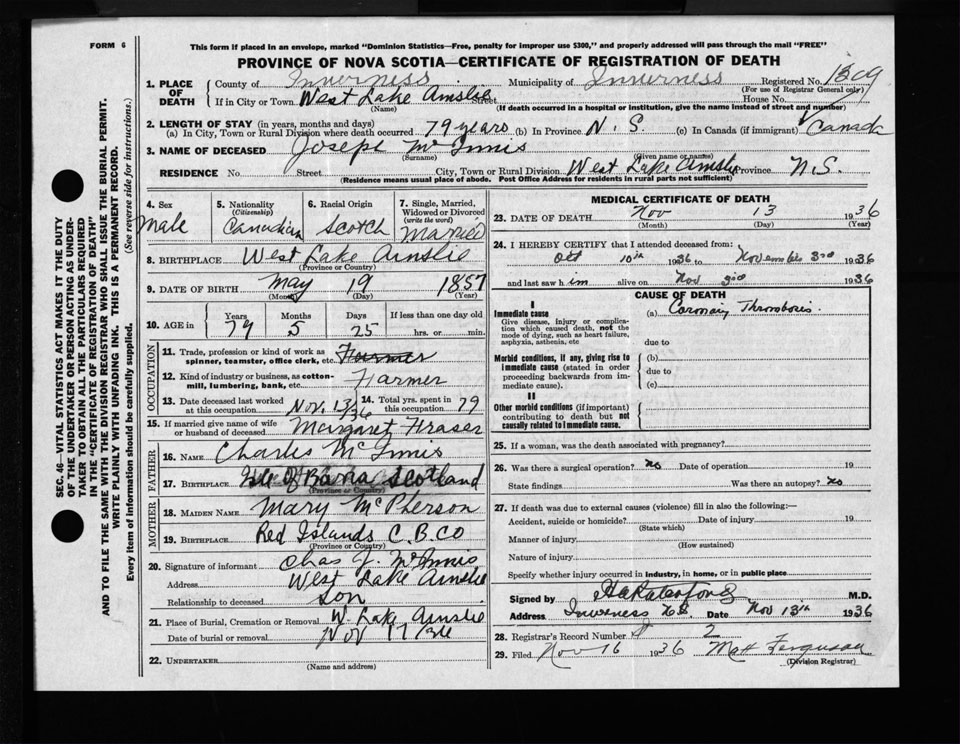 FORM 6
This form if placed in an envelope, marked "Dominion Statistics—Free, penalty for improper use $300," and properly addressed will pass through the mail "FREE"
PROVINCE OF NOVA SCOTIA—CERTIFICATE OF REGISTRATION OF DEATH
SEC. 46—VITAL STATISTICS ACT MAKES IT THE DUTY
OF THE UNDERTAKER OR PERSON ACTING AS UNDER-
TAKER TO OBTAIN ALL THE PARTICULARS REQUIRED
IN THE "CERTIFICATE OF REGISTRATION OF DEATH"
AND TO FILE THE SAME WITH THE DIVISION REGISTRAR WHO SHALL ISSUE THE BURIAL PERMIT.
WRITE PLAINLY WITH UNFADING INK. THIS IS A PERMANENT RECORD.
Every item of information should be carefully supplied. (See reverse side for instructions.)
1. PLACE OF DEATH County of Inverness Municipality of Inverness Registered No. 1309
(For use of Registrar General only)
If in City or Town West Lake Ainslie Street House No.
(Name) (If death occurred in a hospital or institution, give the name instead of street and number)
2. LENGTH OF STAY (in years, months and days)
(a) In City, Town or Rural Division where death occurred 79 years (b) In Province N. S. (c) In Canada (if immigrant) Canada
3. NAME OF DECEASED Joseph McInnis
(Surname) (Given name or names)
RESIDENCE No. Street City, Town or Rural Division West Lake Ainslie Province N.S.
(Residence means usual place of abode. Post Office Address for residents in rural parts not sufficient)
4. Sex Male
5. Nationality (Citizenship) Canadian
6. Racial Origin Scotch
7. Single, Married, Widowed or Divorced (write the word) Married
8. BIRTHPLACE West Lake Ainslie
(Province or Country)
9. DATE OF BIRTH May 19 1857
(Month) (Day) (Year)
10. AGE in Years Months Days If less than one day old
79 5 25 hrs. or min.
OCCUPATION
11. Trade, profession or kind of work as spinner, teamster, office clerk, etc. Farmer
12. Kind of industry or business, as cotton-mill, lumbering, bank, etc. Farmer
13. Date deceased last worked at this occupation Nov. 13/36 14. Total yrs. spent in this occupation 79
15. If married give name of wife or husband of deceased Margaret Fraser
FATHER
16. NAME Charles McInnis
17. BIRTHPLACE Isle Of Barra Scotland
(Province or Country)
MOTHER
18. MAIDEN NAME Mary McPherson
19. BIRTHPLACE Red Islands C.B.CO
(Province or Country)
20. Signature of informant Chas J. McInnis
Address West Lake Ainslie
Relationship to deceased Son
21. Place of Burial, Cremation or Removal W. Lake Ainslie
Date of burial or removal Nov 17/36
22. UNDERTAKER
(Name and address)
MEDICAL CERTIFICATE OF DEATH
23. DATE OF DEATH Nov 13 1936
(Month) (Day) (Year)
24. I HEREBY CERTIFY that I attended deceased from:
Oct 10th 1936 to November 3rd 1936
and last saw him alive on Nov 3rd 1936
CAUSE OF DEATH
I
Immediate cause
Give disease, injury or complication which caused death, not the mode of dying, such as heart failure, asphyxia, asthenia, etc
(a) Coronary Thrombosis.
due to
Morbid conditions, if any, giving rise to immediate cause (stated in order proceeding backwards from immediate cause).
(b)
due to
(c)
II
Other morbid conditions (if important) contributing to death but not causally related to immediate cause.
25. If a woman, was the death associated with pregnancy?
26. Was there a surgical operation? no Date of operation 19
State findings Was there an autopsy? no
27. If death was due to external causes (violence) fill in also the following:—
Accident, suicide or homicide? Date of injury 19
(State which)
Manner of injury
(How sustained)
Nature of injury
Specify whether injury occurred in industry, in home, or in public place
Signed by M.D.
Address Inverness N.S. Date Nov 13th 1936
28. Registrar's Record Number 2
29. Filed Nov 16 1936 Ferguson
(Division Registrar)